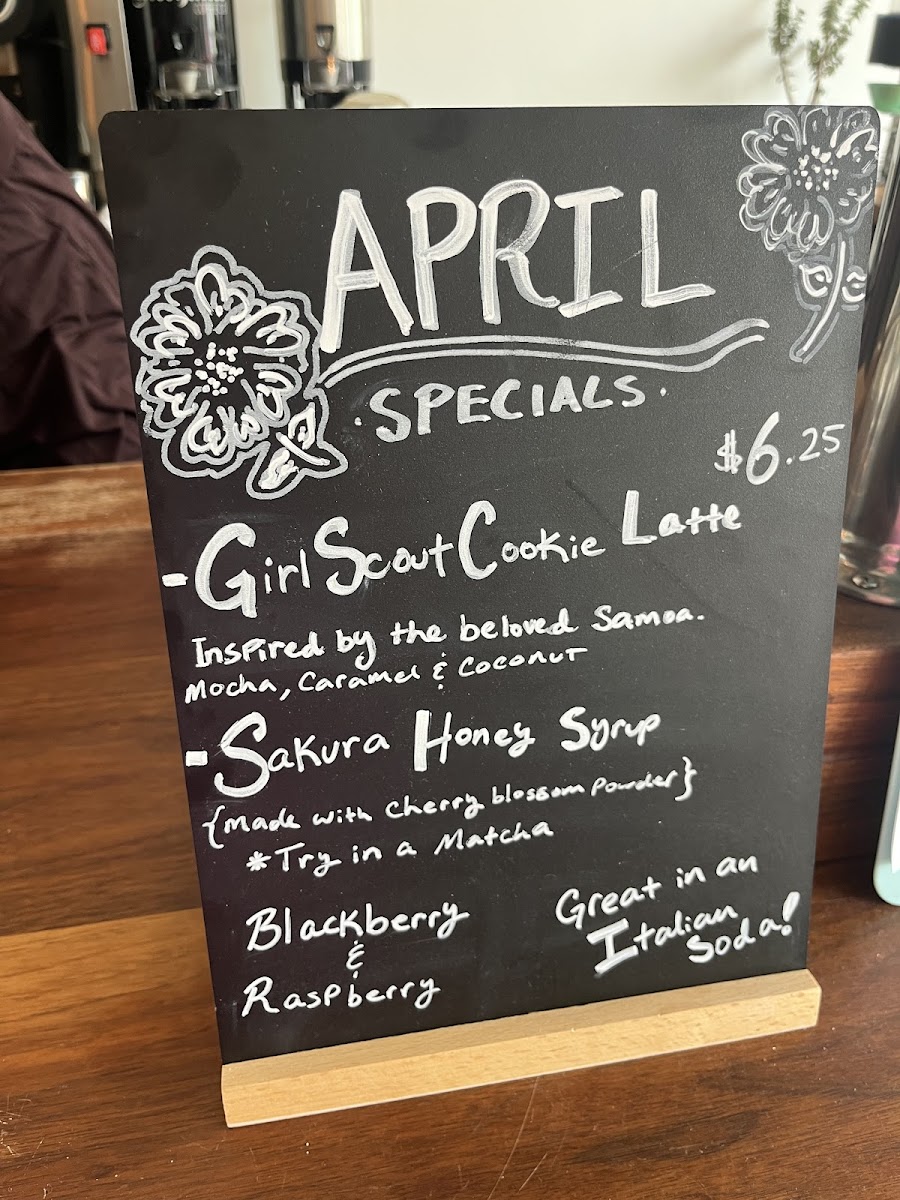 APRIL
·SPECIALS·
$6.25
-Girl Scout Cookie Latte
Inspired by the beloved Samoa.
Mocha, Caramel & Coconut
-Sakura Honey Syrup
{Made with Cherry blossom Powder}
*Try in a Matcha
Blackberry
&
Raspberry
Great in an
Italian
Soda!